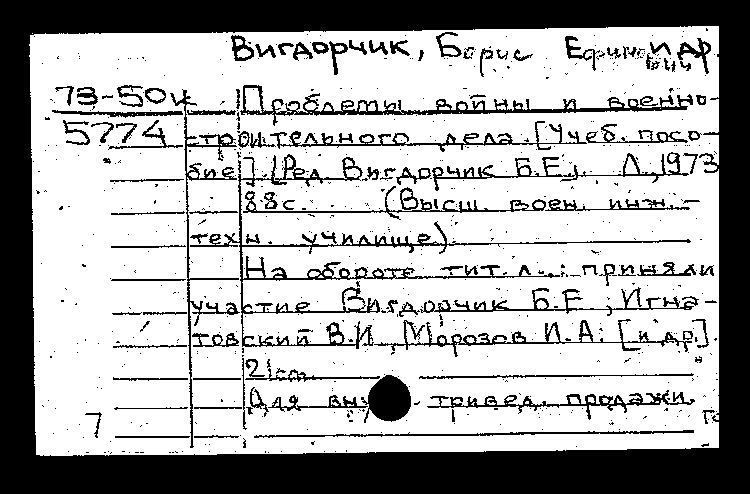 Вигдорчик, Борис Ефимович и др.
73-50к Проблемы войны и военно-
5774 строительного дела. [Учеб. посо-
бие]. [Ред. Вигдорчик Б.Е.]. Л., 1973
88с. (Высш. воен. инж.-
техн. училище).
На обороте тит. л.: приняли
участие Вигдорчик Б.Е., Игна-
товский В.И., Морозов И.А. [и др.].
21cm.
Для вну тривед. продажи.
7